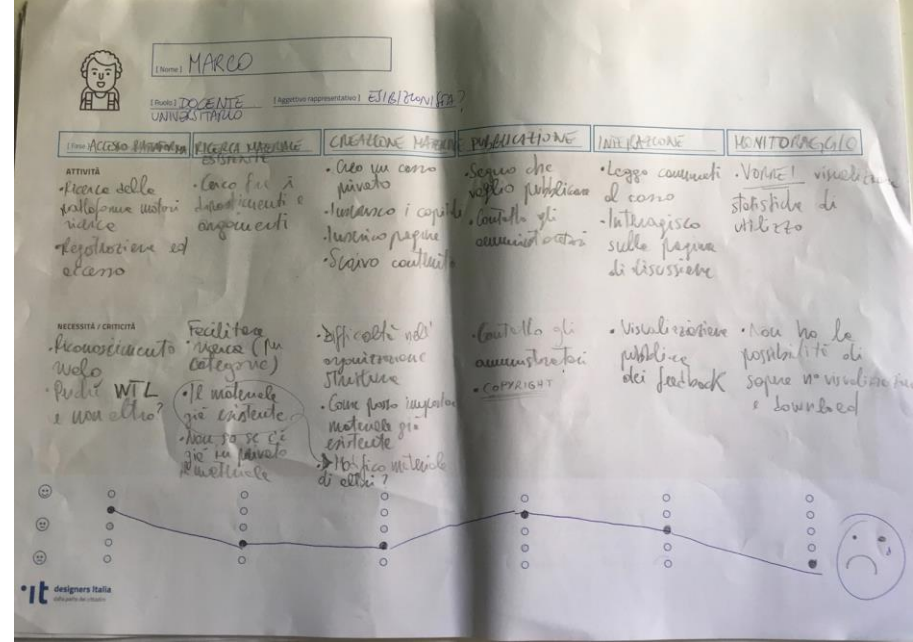 [ Nome ] MARCO
[ Ruolo ] DOCENTE
UNIVERSITARIO
[ Aggettivo rappresentativo ] ESIBIZIONISTA?
[ Fase ] ACCESSO PIATTAFORMA
ATTIVITÀ
• Ricerca della
piattaforma motori
ricerca
• Registrazione ed
accesso
NECESSITÀ / CRITICITÀ
• Riconoscimento
ruolo
• Perché WTL
e non altro?
RICERCA MATERIALE
ESISTENTE
• Cerco fra i
dipartimenti e
argomenti
Facilitare
ricerca (per
categorie)
• Il materiale
già esistente
• Non so se c'è
già in privato
il materiale
CREAZIONE MATERIALE
• Creo un corso
privato
• Inserisco i capitoli
• Inserisco pagine
• Scrivo contenuto
• Difficoltà nell'
organizzazione
struttura
• Come posso importare
materiale già
esistente
• Modifico materiale
di altri?
PUBBLICAZIONE
• Segno che
voglio pubblicare
• Contatto gli
amministratori
• Contatto gli
amministratori
• COPYRIGHT
INTERAZIONE
• Leggo commenti
al corso
• Interagisco
sulla pagina
di discussione
• Visualizzazione
pubblica
dei feedback
MONITORAGGIO
• VORREI visualizzare
statistiche di
utilizzo
• Non ho la
possibilità di
sapere n° visualizzazioni
e download
designers italia